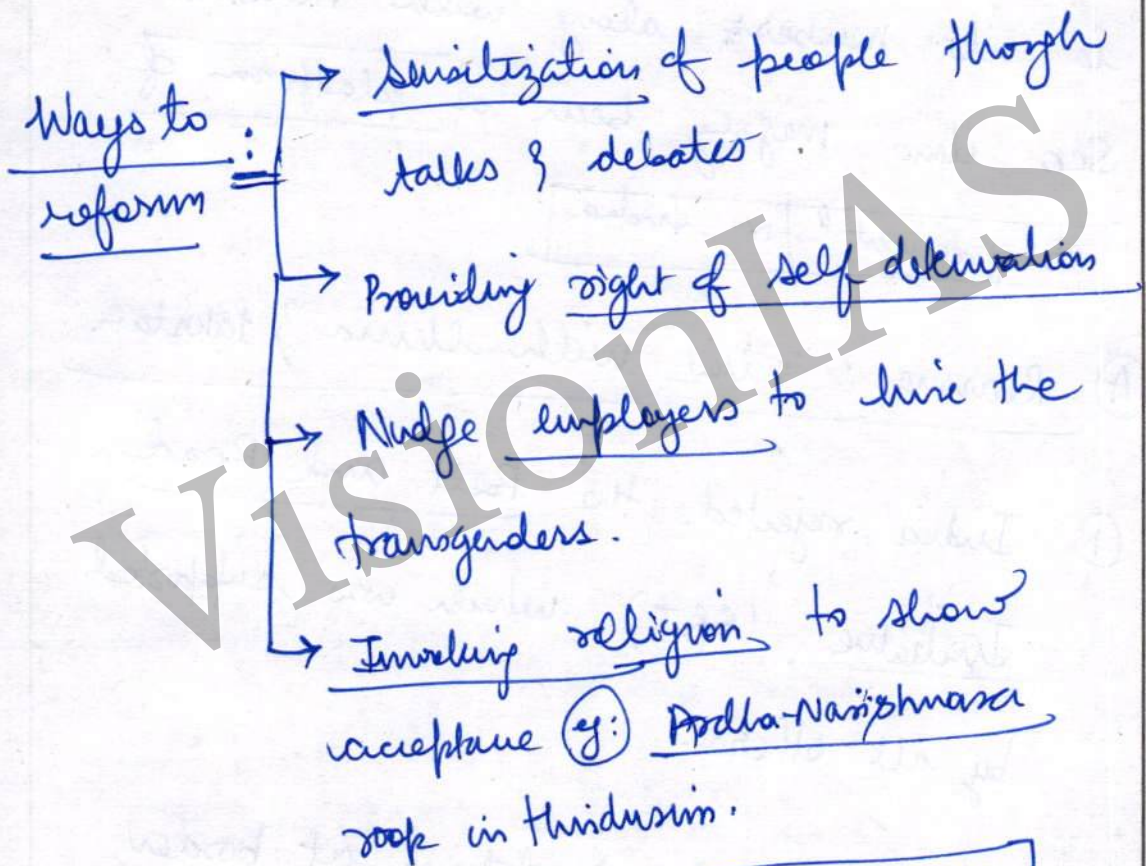 Ways to :
reform
→ Sensitization of people though
talks & debates.
→ Providing right of self determination
→ Nudge employers to hire the
transgenders.
→ Invoking religion to show
acceptance eg: Ardha-Narishwara
roop in Hinduism.
VisionIAS